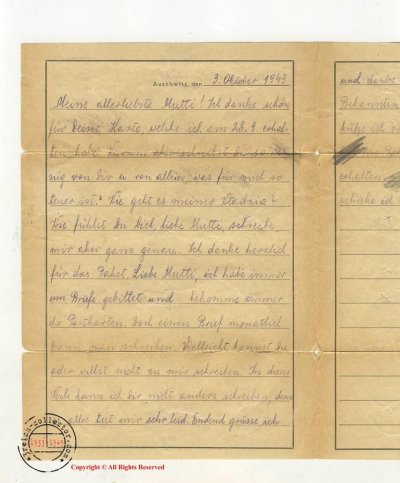 Auschwitz, den 3. Oktober 1943
Meine allerliebste Mutti! Ich danke schön
für Deine Karte, welche ich am 28.9 erhal-
ten habe. Warum aber schreibst Du so we-
nig von Dir u von allem, was für mich so
teuer ist? Wie geht es meiner Władzia?
Wie fühlst Du Dich, liebe Mutti, schreibe
mir aber ganz genau. Ich danke herzlich
für das Paket. Liebe Mutti, ich habe immer
um Briefe gebittet und bekomme immer
die Postkarten. Doch einen Brief monatlich
kann man schreiben. Vielleicht kannst Du
oder willst nicht zu mir schreiben. In dieser
kann ich Dir nicht anders schreiben, denn
alles tut mir sehr leid. Endend grüsse ich
und danke
Bekannten
küsse
erhalten
schicke ich
reich-collector.com
1933-1945
Copyright © All Rights Reserved